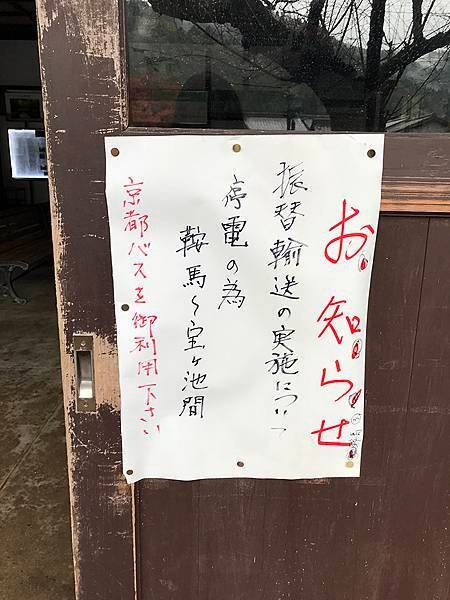 お知らせ
振替輸送の実施について
停電の為
鞍馬〜宝ヶ池間
京都バスを御利用下さい